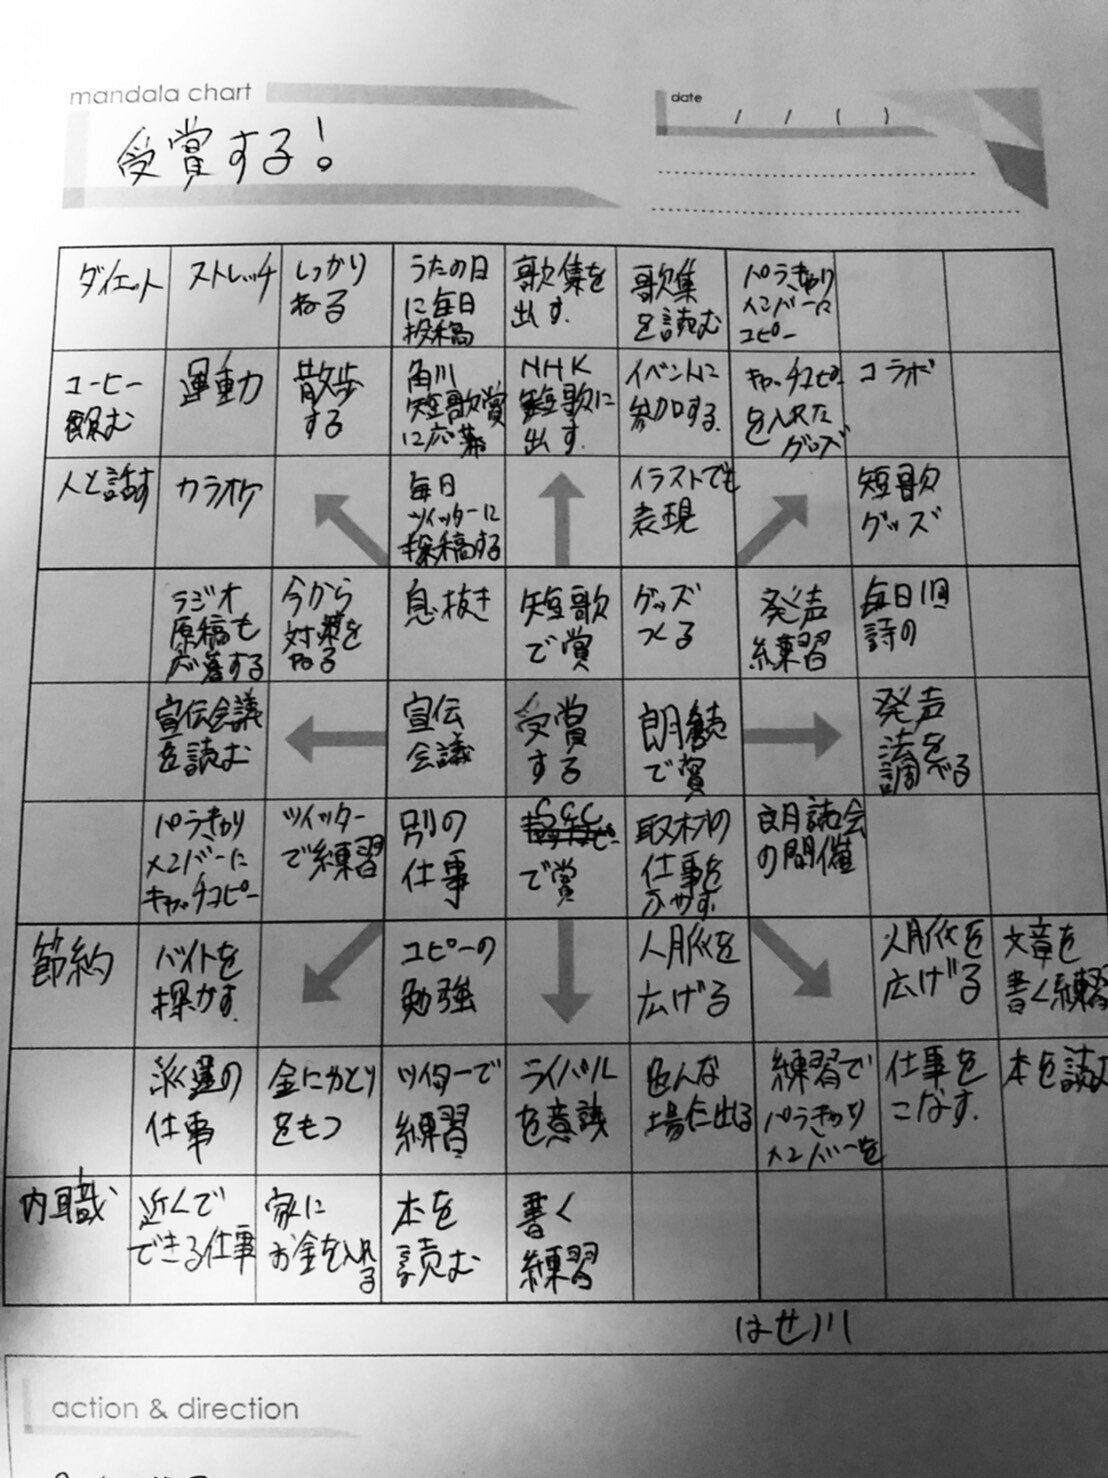 mandala chart
date
/ / ( )
受賞する!
ダイエット
ストレッチ
しっかり
ねる
うたの日
に毎日
投稿
歌集を
出す.
歌集
を読む
パラきゃり
メンバーに
コピー
コーヒー
飲む
運動
散歩
する
角川
短歌賞
に応募
NHK
短歌に
出す.
イベントに
参加する.
キャッチコピー
を入れた
グッズ
コラボ
人と話す
カラオケ
毎日
ツイッターに
投稿する
イラストでも
表現
短歌
グッズ
ラジオ
原稿も
応募する
今から
対策を
ねる
息抜き
短歌
で賞
グッズ
つくる
発声
練習
毎日1回
詩の
宣伝会議
を読む
宣伝
会議
受賞
する
朗読
で賞
発声
法を
調べる
パラきゃり
メンバーに
キャッチコピー
ツイッター
で練習
別の
仕事
CCC
で賞
取材の
仕事を
ふやす.
朗読会
の開催
節約
バイトを
探す.
コピーの
勉強
人脈を
広げる
人脈を
広げる
文章を
書く練習
派遣の
仕事
金にかとり
をもつ
ツイッターで
練習
ライバル
を意識
色んな
場に出る
練習で
パラきゃり
メンバーを
仕事を
こなす.
本を読む
内職
近くで
できる仕事
家に
お金を入れる
本を
読む
書く
練習
はせ川
action & direction